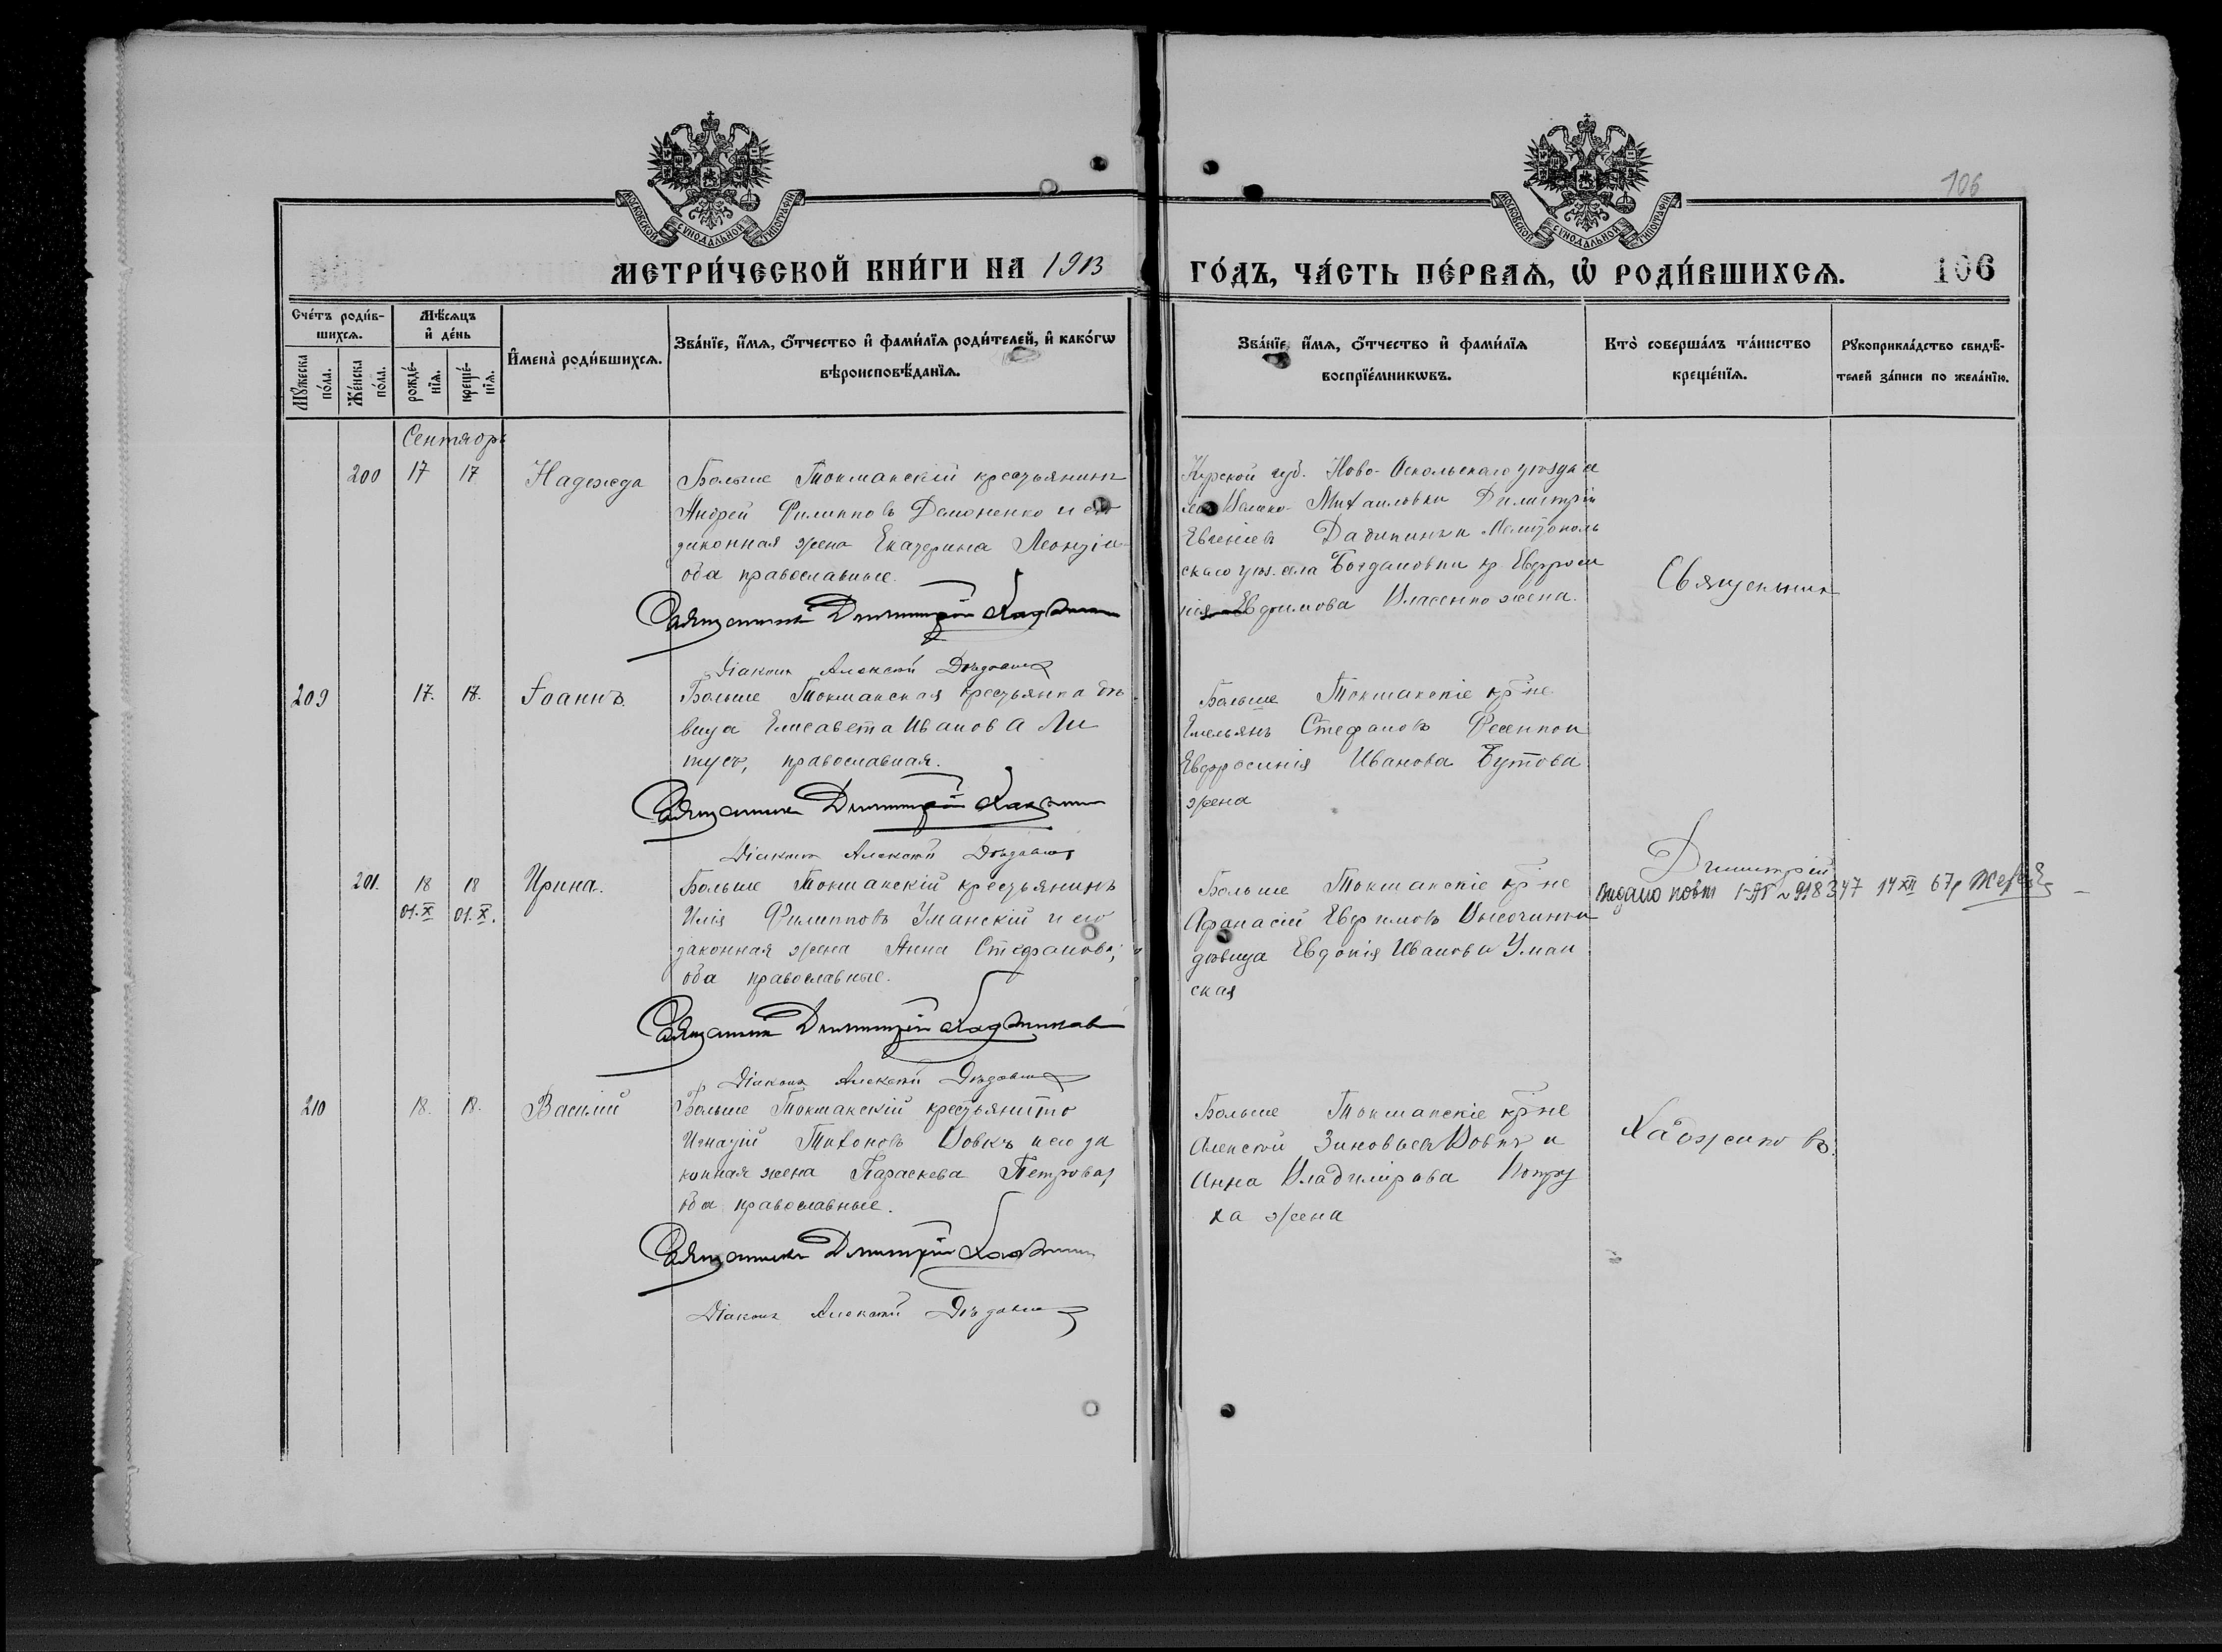 106
МОСКОВСКОЙ СѴНОДАЛЬНОЙ ТИПОГРАФІИ
МОСКОВСКОЙ СѴНОДАЛЬНОЙ ТИПОГРАФІИ
МЕТРИ́ЧЕСКОЙ КНИ́ГИ НА 1913 ГО́ДЪ, ЧА́СТЬ ПЕ́РВАѦ, Ѡ҆ РОДИ́ВШИХСѦ. 106
Сче́тъ роди́в-
шихсѧ.
Мꙋ́жеска по́ла.
Же́нска по́ла.
Мѣ́сѧцъ и҆ де́нь
рожде́-нїѧ.
креще́-нїѧ.
И҆мена̀ роди́вшихсѧ.
Зва́нїе, и҆́мѧ, ѻ҆́тчество и҆ фами́лїѧ роди́телей, и҆ како́гѡ
вѣроисповѣ́данїѧ.
Зва́нїе, и҆́мѧ, ѻ҆́тчество и҆ фами́лїѧ
воспрїе́мникѡвъ.
Кто̀ соверша́лъ та́инство
креще́нїѧ.
Рꙋкоприкла́дство свидѣ́-
телей за́писи по жела́нїю.
Сентябрь
200 17 17 Надежда
Больше Токмакскій крестьянинъ
Андрей Филипповъ Демоненко и его
законная жена Екатерина Леонтіева
оба православные.
Священникъ Димитрій Хаджиновъ
Діаконъ Алексѣй
Курской губ. Ново-Оскольскаго уѣзда
Михаиловки Димитрій
Евгеніевъ Мелитополь
скаго уѣз. села Богдановки кр. Евфроси
нія Евфимова Власенко жена.
Священникъ
209 17. 18. Іоаннъ.
Больше Токмакская крестьянка дѣ
вица Елисавета Иванова Ли
тусъ, православная.
Священникъ Димитрій Хаджиновъ
Діаконъ Алексѣй
Больше Токмакскіе кр-не
Емельянъ Стефановъ Фесенко и
Евфросинія Иванова Бутова
жена
Димитрій
201. 18 18 Ирина.
01.X 01.X.
Больше Токмакскій крестьянинъ
Илія Филипповъ Уманскій и его
законная жена Анна Стефанова,
оба православные.
Священникъ Димитрій Хаджиновъ
Діаконъ Алексѣй
Больше Токмакскіе кр-не
Афанасій Евфимовъ Височинъ и
дѣвица Евдокія Иванова Уман
ская
видано повт 1-АП № 918347 14 XII 67р
210 18. 18. Василій
Больше Токмакскій крестьянинъ
Игнатій Тихоновъ Вовкъ и его за
конная жена Параскева Петрова,
оба православные.
Священникъ Димитрій Хаджиновъ
Діаконъ Алексѣй
Больше Токмакскіе кр-не
Алексѣй Зиновьевъ Вовкъ и
Анна Владимірова
ха жена
Хаджиновъ.